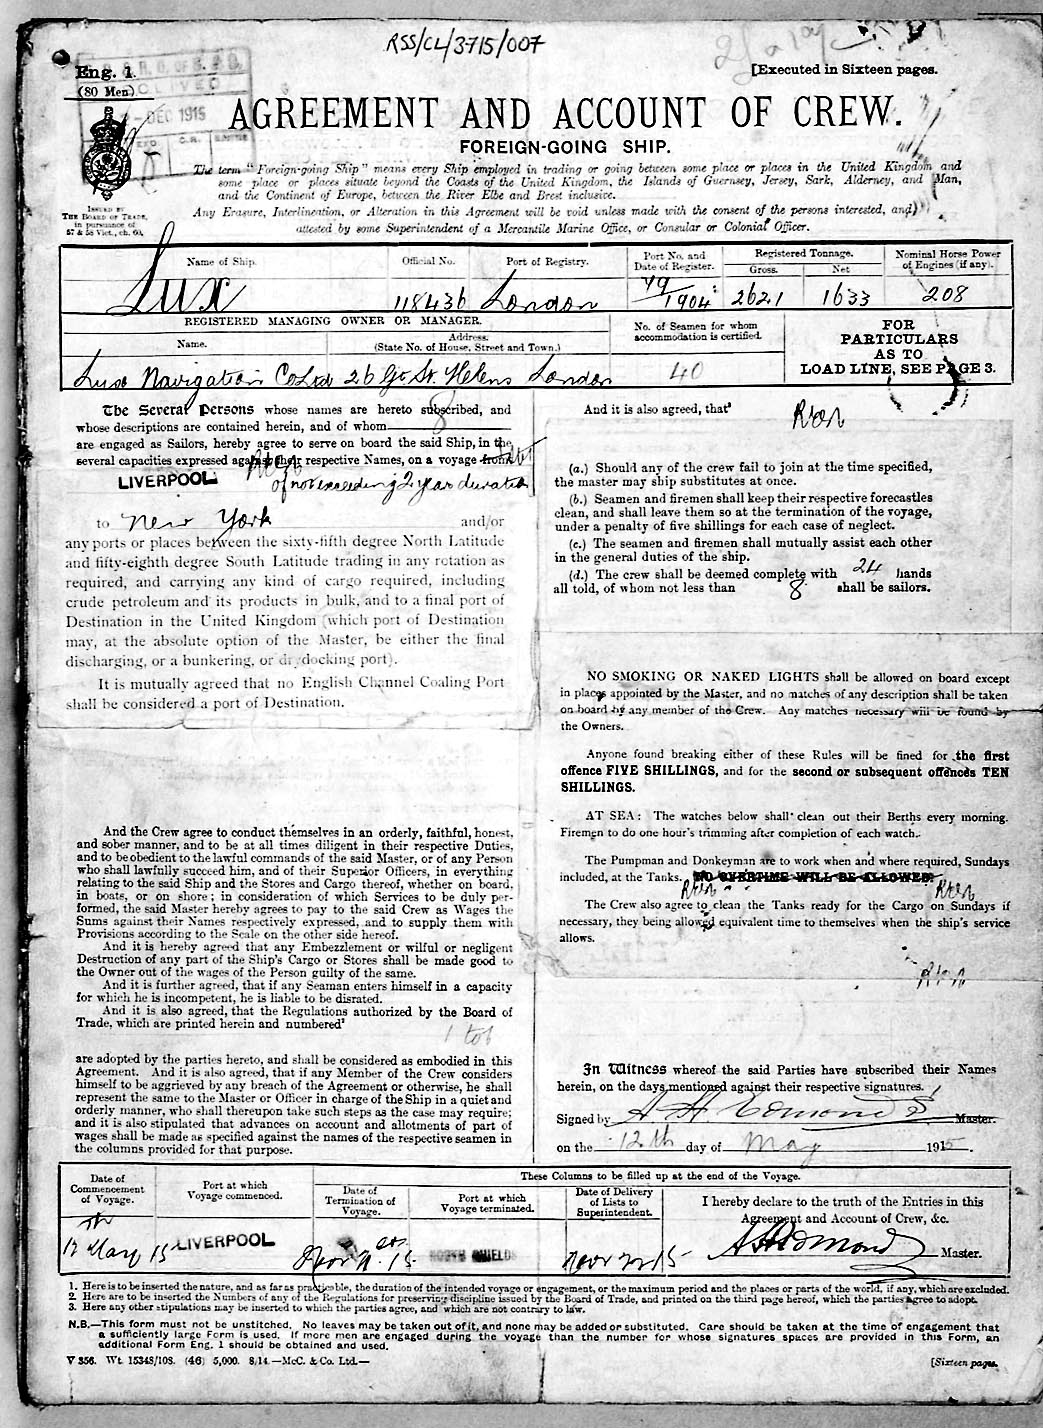 RSS/CL/3715/007
Eng. 1.
(80 Men)
DEC 1915
[Executed in Sixteen pages.
AGREEMENT AND ACCOUNT OF CREW.
FOREIGN-GOING SHIP.
The term "Foreign-going Ship" means every Ship employed in trading or going between some place or places in the United Kingdom and
some place or places situate beyond the Coasts of the United Kingdom, the Islands of Guernsey, Jersey, Sark, Alderney, and Man,
and the Continent of Europe, between the River Elbe and Brest inclusive.
Any Erasure, Interlineation, or Alteration in this Agreement will be void unless made with the consent of the persons interested, and
attested by some Superintendent of a Mercantile Marine Office, or Consular or Colonial Officer.
ISSUED BY
THE BOARD OF TRADE,
in pursuance of
57 & 58 Vict., ch. 60.
Name of Ship. Official No. Port of Registry. Port No. and Date of Register. Registered Tonnage. Gross. Net Nominal Horse Power of Engines (if any).
Lux 118436 London 79/1904 2621 1633 208
REGISTERED MANAGING OWNER OR MANAGER.
Name. Address. (State No. of House, Street and Town.)
No. of Seamen for whom accommodation is certified.
FOR
PARTICULARS
AS TO
LOAD LINE, SEE PAGE 3.
Lux Navigation Co Ltd 26 Gt St. Helens London 40
The Several Persons whose names are hereto subscribed, and
whose descriptions are contained herein, and of whom 8
are engaged as Sailors, hereby agree to serve on board the said Ship, in the
several capacities expressed against their respective Names, on a voyage from
LIVERPOOL of not exceeding 2 years duration
to New York and/or
any ports or places between the sixty-fifth degree North Latitude
and fifty-eighth degree South Latitude trading in any rotation as
required, and carrying any kind of cargo required, including
crude petroleum and its products in bulk, and to a final port of
Destination in the United Kingdom (which port of Destination
may, at the absolute option of the Master, be either the final
discharging, or a bunkering, or drydocking port).
It is mutually agreed that no English Channel Coaling Port
shall be considered a port of Destination.
And the Crew agree to conduct themselves in an orderly, faithful, honest,
and sober manner, and to be at all times diligent in their respective Duties,
and to be obedient to the lawful commands of the said Master, or of any Person
who shall lawfully succeed him, and of their Superior Officers, in everything
relating to the said Ship and the Stores and Cargo thereof, whether on board,
in boats, or on shore; in consideration of which Services to be duly per-
formed, the said Master hereby agrees to pay to the said Crew as Wages the
Sums against their Names respectively expressed, and to supply them with
Provisions according to the Scale on the other side hereof.
And it is hereby agreed that any Embezzlement or wilful or negligent
Destruction of any part of the Ship's Cargo or Stores shall be made good to
the Owner out of the wages of the Person guilty of the same.
And it is further agreed, that if any Seaman enters himself in a capacity
for which he is incompetent, he is liable to be disrated.
And it is also agreed, that the Regulations authorized by the Board of
Trade, which are printed herein and numbered²
1 to 6
are adopted by the parties hereto, and shall be considered as embodied in this
Agreement. And it is also agreed, that if any Member of the Crew considers
himself to be aggrieved by any breach of the Agreement or otherwise, he shall
represent the same to the Master or Officer in charge of the Ship in a quiet and
orderly manner, who shall thereupon take such steps as the case may require;
and it is also stipulated that advances on account and allotments of part of
wages shall be made as specified against the names of the respective seamen in
the columns provided for that purpose.
And it is also agreed, that³
(a.) Should any of the crew fail to join at the time specified,
the master may ship substitutes at once.
(b.) Seamen and firemen shall keep their respective forecastles
clean, and shall leave them so at the termination of the voyage,
under a penalty of five shillings for each case of neglect.
(c.) The seamen and firemen shall mutually assist each other
in the general duties of the ship.
(d.) The crew shall be deemed complete with 24 hands
all told, of whom not less than 8 shall be sailors.
NO SMOKING OR NAKED LIGHTS shall be allowed on board except
in places appointed by the Master, and no matches of any description shall be taken
on board by any member of the Crew. Any matches necessary will be found by
the Owners.
Anyone found breaking either of these Rules will be fined for the first
offence FIVE SHILLINGS, and for the second or subsequent offences TEN
SHILLINGS.
AT SEA: The watches below shall clean out their Berths every morning.
Firemen to do one hour's trimming after completion of each watch.
The Pumpman and Donkeyman are to work when and where required, Sundays
included, at the Tanks. NO OVERTIME WILL BE ALLOWED.
The Crew also agree to clean the Tanks ready for the Cargo on Sundays if
necessary, they being allowed equivalent time to themselves when the ship's service
allows.
In Witness whereof the said Parties have subscribed their Names
herein, on the days mentioned against their respective signatures.
Signed by A H Edmonds Master.
on the 12th day of May 1915.
These Columns to be filled up at the end of the Voyage.
Date of Commencement of Voyage. Port at which Voyage commenced. Date of Termination of Voyage. Port at which Voyage terminated. Date of Delivery of Lists to Superintendent.
I hereby declare to the truth of the Entries in this
Agreement and Account of Crew, &c.
LIVERPOOL NORTH SHIELDS A H Edmonds Master.
1. Here is to be inserted the nature, and as far as practicable, the duration of the intended voyage or engagement, or the maximum period and the places or parts of the world, if any, which are excluded.
2. Here are to be inserted the Numbers of any of the Regulations for preserving discipline issued by the Board of Trade, and printed on the third page hereof, which the parties agree to adopt.
3. Here any other stipulations may be inserted to which the parties agree, and which are not contrary to law.
N.B.—This form must not be unstitched. No leaves may be taken out of it, and none may be added or substituted. Care should be taken at the time of engagement that
a sufficiently large Form is used. If more men are engaged during the voyage than the number for whose signatures spaces are provided in this Form, an
additional Form Eng. 1 should be obtained and used.
V 356. Wt. 15348/108. (46) 5,000. 8/14.—McC. & Co. Ltd.—
[Sixteen pages.